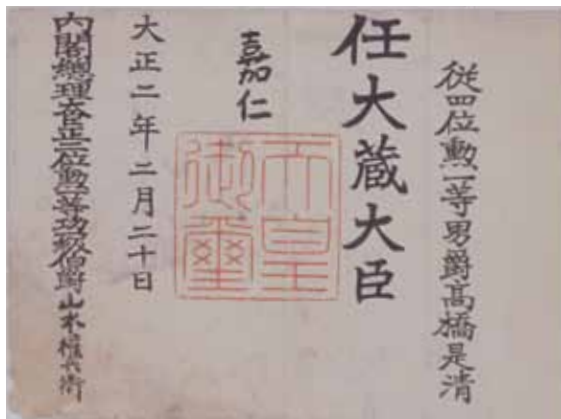 従四位勲一等男爵高橋是清
任大蔵大臣
嘉仁
天皇御璽
大正二年二月二十日
内閣總理大臣正二位勲一等功二級伯爵山本權兵衛